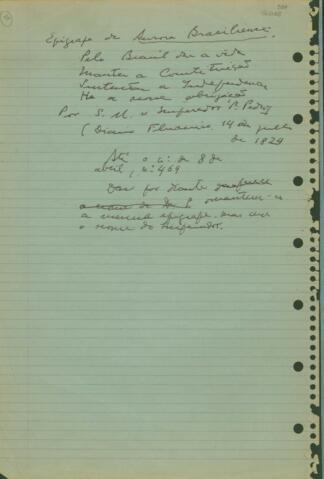 Epigrafe da Aurora Brasiliense:
Pelo Brasil dar a vida
Manter a Constituição
Sustentar a Independencia
He a nossa obrigação
Por S. M. o Imperador D. Pedro I
(Diario Fluminense, 14 de julho
de 1829
Até o n.º de 8 de
abril, n.º 469
Daí por diante
o nome de D. P. mantem-se
a mesma epigrafe, mas sem
o nome do Imperador.